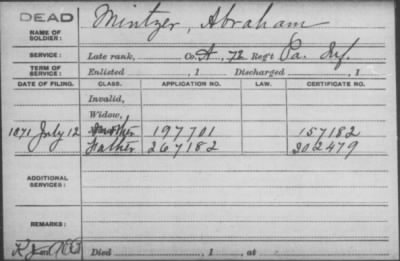 DEAD
NAME OF SOLDIER: Mintzer, Abraham
SERVICE: Late rank, Co. A, 72 Reg't Pa. Inf.
TERM OF SERVICE: Enlisted , 1 Discharged , 1
DATE OF FILING. CLASS. APPLICATION NO. LAW. CERTIFICATE NO.
Invalid,
Widow,
1871 July 12 Mother 197701 157182
Father 267182 202479
ADDITIONAL SERVICES:
REMARKS:
Died , 1 , at